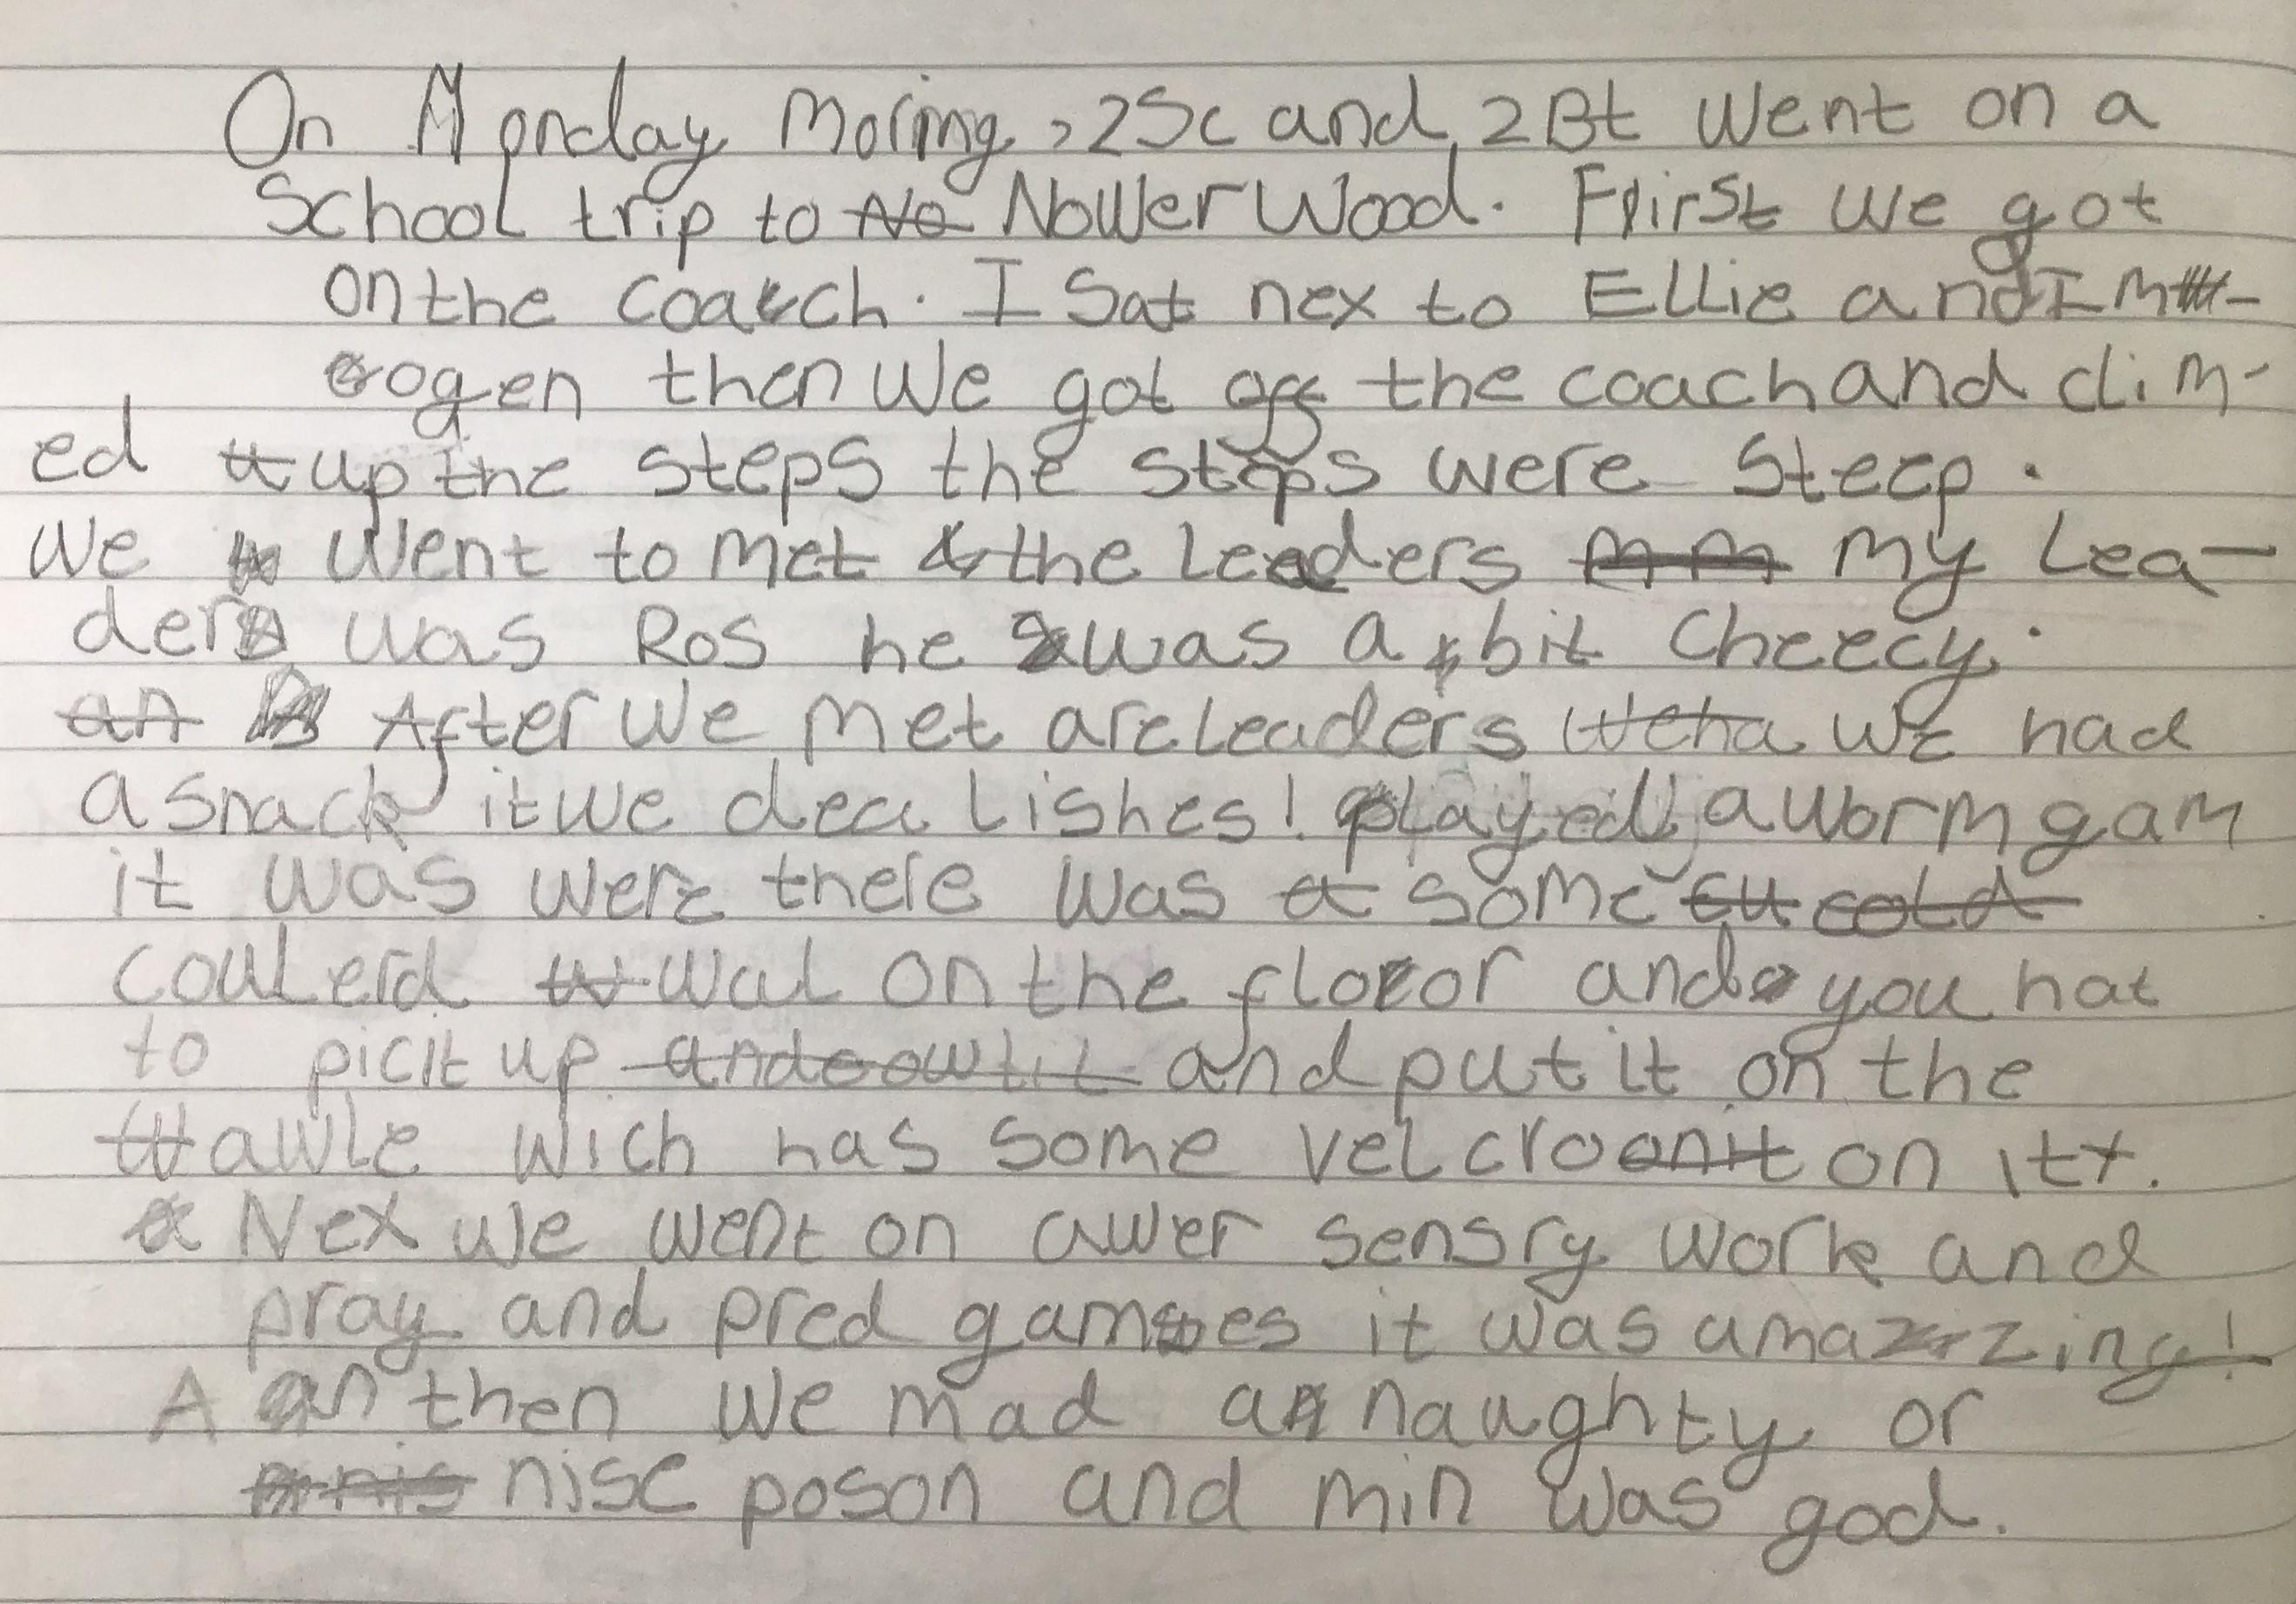 On Monday Moring, 2Sc and 2Bt went on a
School trip to ~~No~~ Nower Wood. First we got
on the coach. I Sat nex to Ellie and Im-
ogen then we got off the coach and clim-
ed up the steps the steps were steep.
we went to met the Leaders my Lea-
der was Ros he was a bit cheecy.
~~an~~ After we met are Leaders ~~weha~~ we had
a snack it we deca Lishes! played a worm gam
it was were there was ~~a~~ some ~~cu cold~~
coulerd ~~w~~ wul on the floor and you hat
to pick up ~~andoowtit~~ and put it on the
~~tt~~ awle wich has some velcro ~~onit~~ on it.
Nex we went on awer sensry work and
pray and pred games it was amazing!
A then we mad a naughty or
~~nis~~ nise poson and min was god.